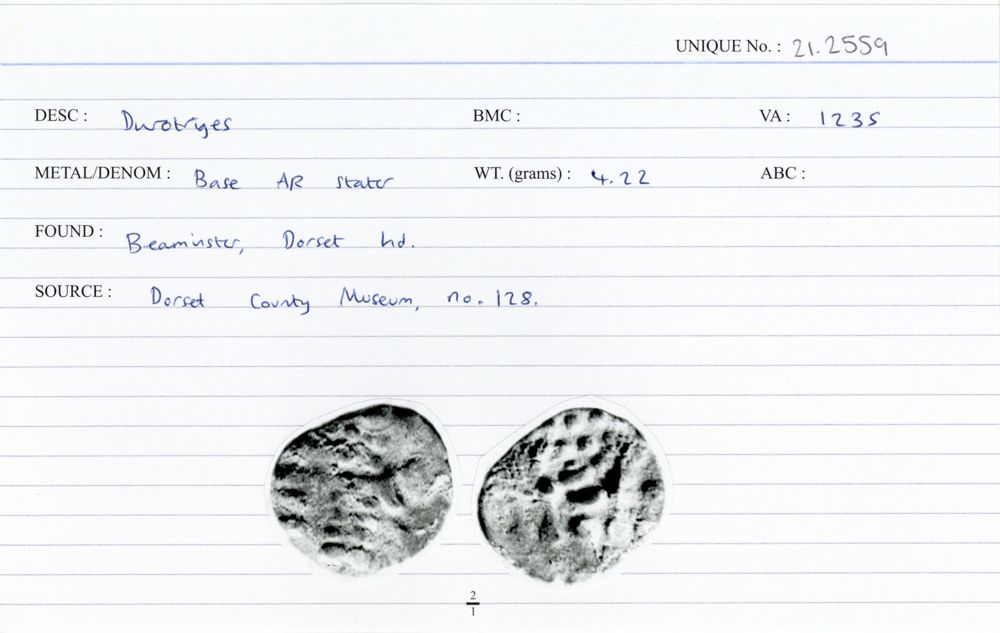 UNIQUE No. : 21.2559
DESC : Durotriges BMC : VA : 1235
METAL/DENOM : Base AR stater WT. (grams) : 4.22 ABC :
FOUND : Beaminster, Dorset hd.
SOURCE : Dorset County Museum, no. 128.
2
1